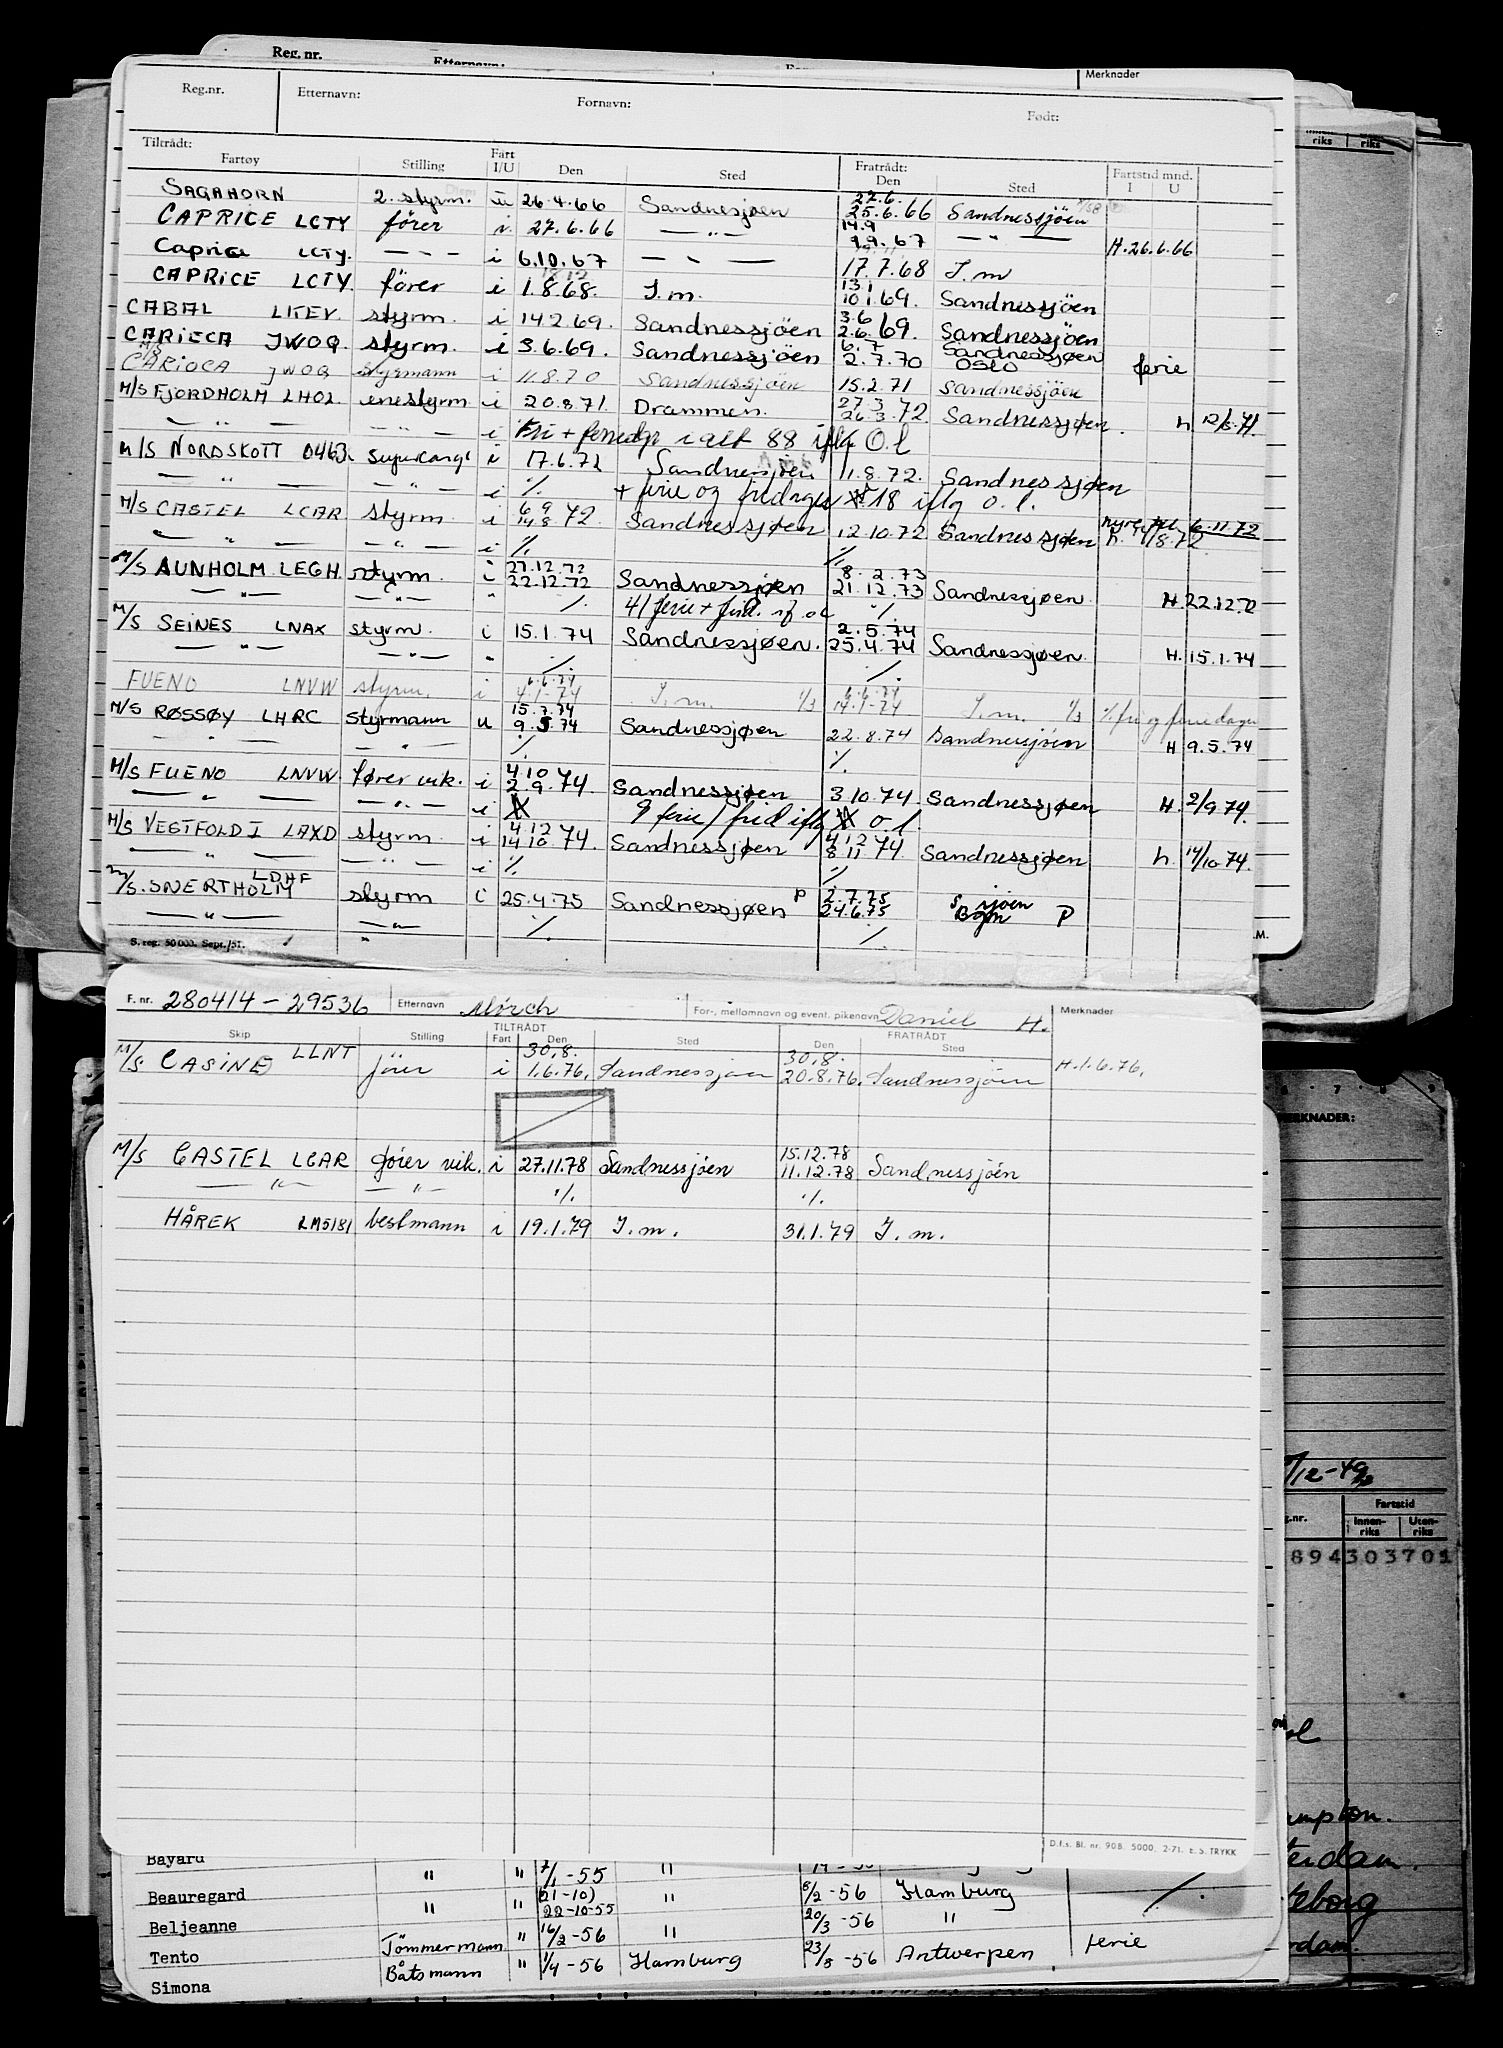 Reg. nr.
Etternavn:
Merknader
Reg.nr. Etternavn: Fornavn: Født:
Tiltrådt: Fratrådt:
Fartøy Stilling Fart I/U Den Sted Den Sted Fartstid mnd. I U
27.6.
SAGAHORN 2. styrm. u 26.4.66 Sandnesjøen 25.6.66 Sandnessjöen
14.9
CAPRICE LCTY förer i 27.6.66 — " — 9.9.67 — " — H. 26.6.66
Caprice LCTY. — " — i 6.10.67 — " — 17.7.68 I.m
13.1
CAPRICE LCTY. förer i 1.8.68. I.m. 10.1.69. Sandnessjöen
3.6
CABAL LKEV. styrm. i 14.2.69. Sandnessjöen 2.6.69. Sandnessjöen
6.7 Sandnessjøen
CARIECA JWOQ. styrm. i 3.6.69. Sandnessjöen 2.7.70 OSLO ferie
M/S CARIOCA JWOQ styrmann i 11.8.70 Sandnessjöen 15.2.71 Sandnessjöen
27.3
M/S FJORDHOLM LHOL enestyrm i 20.8.71. Drammen. 26.3.72 Sandnessjøen. h 12/8.71.
— " — — " — i Fri + feriedgr i alt 88 iflg O.l
M/S NORDSKOTT 0463. i 17.6.72 Sandnesjøen 11.8.72. Sandnessjøen
— " — — " — i ./. + ferie og fridager 18 iflg o.l.
6.9
M/S CASTEL LCAR styrm. i 14.8.72. Sandnessjøen 12.10.72 Sandnessjøen 6.11.72
— " — — " — i ./. ./. h. 8.72.
27.12.72 8.2.73
M/S AUNHOLM LEGH. styrm. i 22.12.72 Sandnessjøen 21.12.73 Sandnessjøen. H. 22.12.72
— " — — " — " ./. 41 ferie + frid. if. ol ./.
2.5.74
M/S SEINES LNAX styrm. i 15.1.74 Sandnessjøen. 25.4.74 Sandnessjøen. H. 15.1.74
— " — — " — " ./. ./.
6.6.74 6.6.74
FUENO LNVW styrm. i 4.1-74 I.m. 1/3 14.1-74 I.m. 1/3 ./. fri og feriedager
15.7.74
M/S RØSSØY LHRC styrmann u 9.5.74 Sandnessjøen 22.8.74 Sandnessjöen H 9.5.74
— " — — " — ./. ./.
4.10
M/S FUENO LNVW fører vik. i 2.9.74. Sandnessjøen 3.10.74 Sandnessjøen H. 2/9.74.
— " — — " — i 9 ferie/frid iflg o.l.
4.12 4.12
M/S VESTFOLD I LAXD styrm. i 14.10.74. Sandnessjøen 8.11.74. Sandnessjøen h. 14/10.74.
— " — — " — i ./. ./.
LDHF 2.7.75 sjøen
M/S. SNERTHOLM styrm i 25.4.75 Sandnessjøen P 24.6.75 Bgn P
— " — — " — ./. ./.
S. reg. 50 000. Sept./51.
F. nr. 280414 - 29536 Etternavn Mörch For-, mellomnavn og event. pikenavn Daniel H. Merknader
TILTRÅDT FRATRÅDT
Skip Stilling Fart Den Sted Den Sted
30.8. 30.8.
M/S CASINO LLNT förer i 1.6.76. Sandnessjøen 20.8.76. Sandnessjöen H.1.6.76.
15.12.78
M/S CASTEL LCAR förer vik. i 27.11.78 Sandnessjöen 11.12.78 Sandnessjöen
— " — — " — ./. ./.
HÅREK LM5181 bestmann i 19.1.79 I.m. 31.1.79 I.m.
D.f.s. Bl. nr. 90B. 5000. 2-71. E.S. TRYKK
Bayard " " 7/1-55 "
(21-10)
Beauregard " " 22-10-55 " 8/2-56 Hamburg ./.
Beljeanne " 16/2-56 " 20/3-56 "
Tento Tömmermann " 1/4-56 Hamburg 23/8-56 Antwerpen ferie
Simona Båtsmann
MERKNADER:
/12-49
Fartstid
Innen-riks Uten-riks
894303701